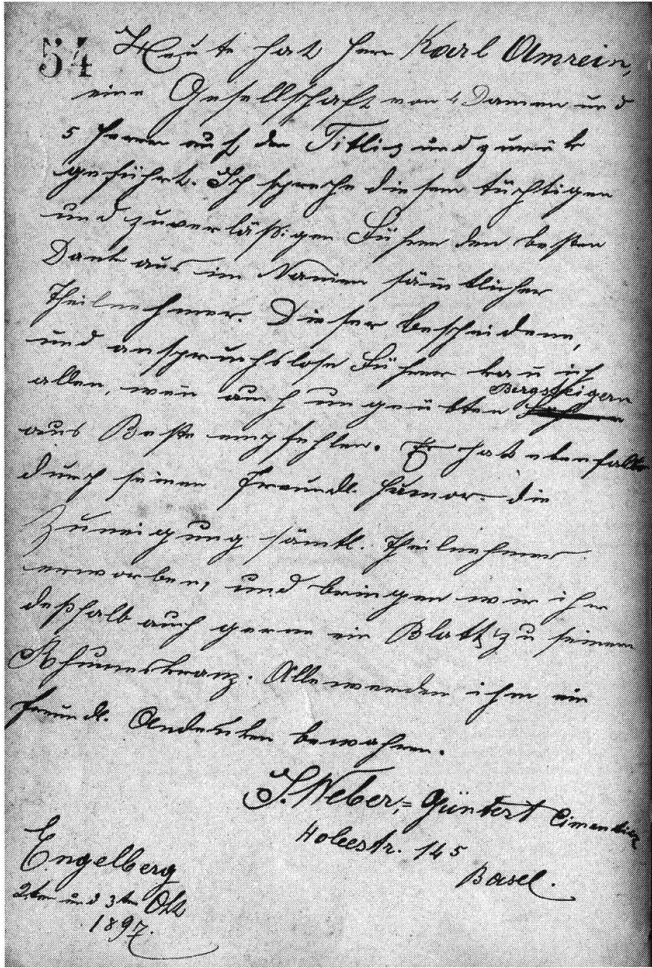 54
Heute hat Herr Karl Amrein,
eine Gesellschaft von 4 Damen und
5 Herren auf den Titlis und zurük
geführt. Ich spreche diesem tüchtigen
und zuverläßigen Führer den besten
Dank aus im Namen sämtlicher
Theilnehmer. Dieser bescheidene,
und anspruchslose Führer kañ ich
allen, weñ auch ungeübten Bergsteigern
aufs Beste empfehlen. Er hat ebenfalls
durch seinen freundl. Humor die
Zuneigung sämtl. Theilnehmer
erworben, und bringen wir ihm
deßhalb auch gerne ein Blatt zu seinem
Ruhmeskranz. Alle werden ihm ein
freundl. Andenken bewahren.
J. Weber-Güntert
Holeestr. 145
Basel.
Engelberg
2ten und 3ten Okt
1897.